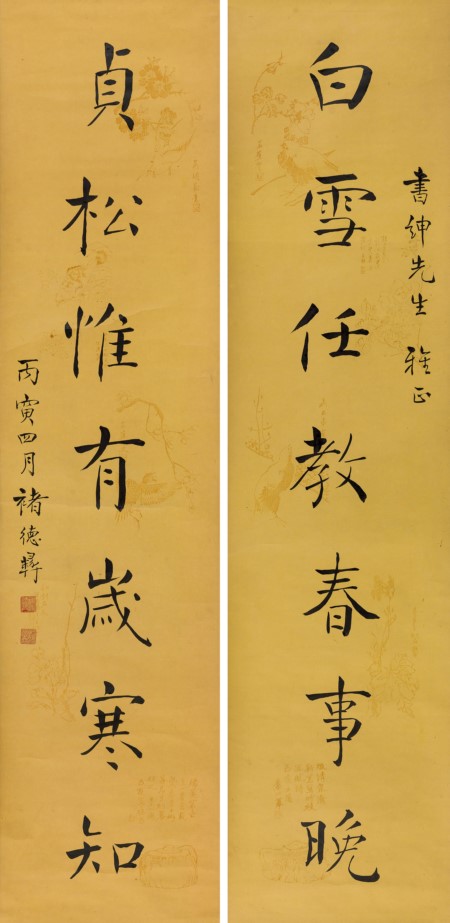 書紳先生 雅正
白雪任教春事晚
貞松惟有歲寒知
丙寅四月 褚德彝